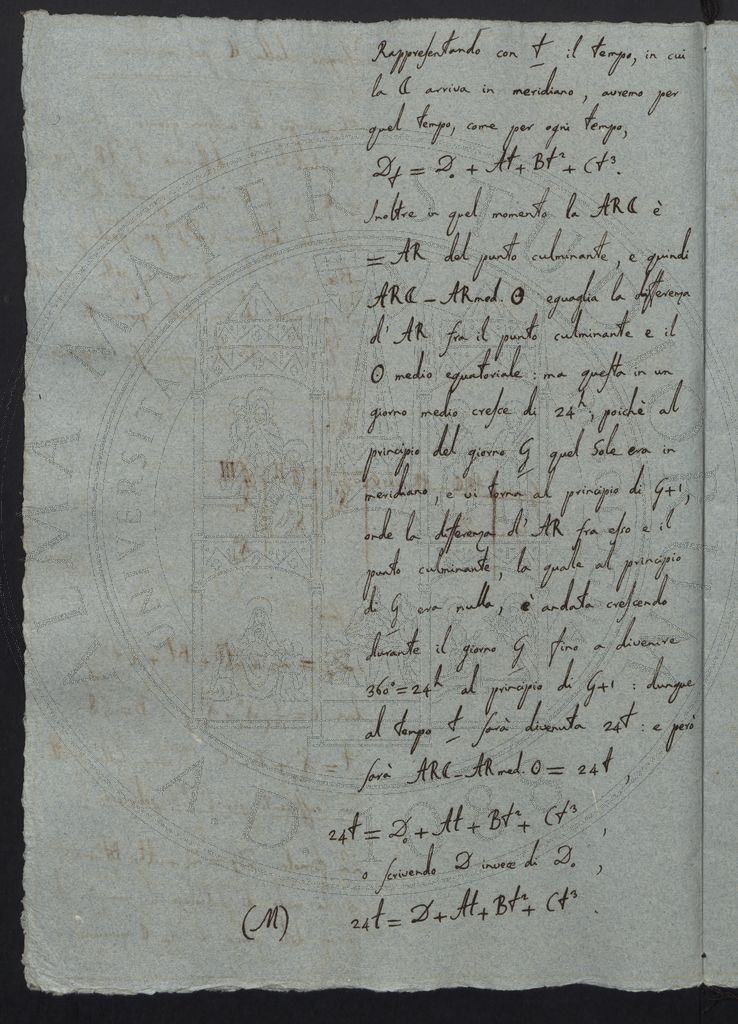 Rappresentando con t il tempo, in cui
la ☾ arriva in meridiano, avremo per
quel tempo, come per ogni tempo,
Dt = D₀ + At + Bt² + Ct³.
Inoltre in quel momento la AR☾ è
= AR del punto culminante, e quindi
AR☾ – ARmed. ʘ eguaglia la differenza
d'AR fra il punto culminante e il
ʘ medio equatoriale: ma questa in un
giorno medio cresce di 24ʰ, poichè al
principio del giorno G quel Sole era in
meridiano, e vi torna al principio di G+1,
onde la differenza d'AR fra esso e il
punto culminante, la quale al principio
di G era nulla, è andata crescendo
durante il giorno G fino a divenire
360°=24ʰ al principio di G+1: dunque
al tempo t sarà divenuta 24t: e però
sarà AR☾ – ARmed. ʘ = 24t,
24t = D₀ + At + Bt² + Ct³,
o scrivendo D invece di D₀,
(M) 24t = D + At + Bt² + Ct³.
ALMA MATER STUD
UNIVERSITA
A.D. 1088